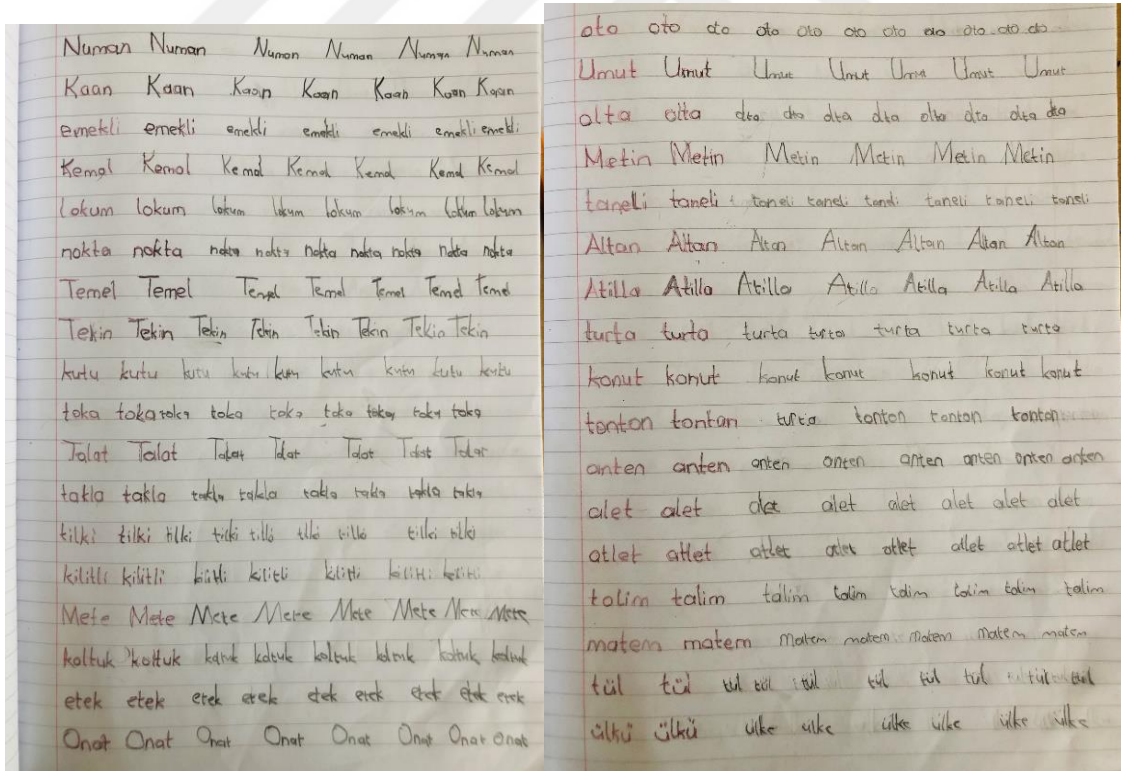 Numan Numan Numan Numan Numan Numan
Kaan Kaan Kaan Kaan Kaan Kaan Kaan
emekli emekli emekli emekli emekli emekli emekli
Kemal Kemal Kemal Kemal Kemal Kemal Kemal
lokum lokum lokum lokum lokum lokum lokum lokum
nokta nokta nokta nokta nokta nokta nokta nokta nokta
Temel Temel Temel Temel Temel Temel Temel
Tekin Tekin Tekin Tekin Tekin Tekin Tekin Tekin
kutu kutu kutu kutu kutu kutu kutu kutu kutu
toka toka toka toka toka toka tokay toka toka
Talat Talat Talat Talat Talat Talat Talat
takla takla takla takla takla takla takla takla
tilki tilki tilki tilki tilki tilki
kilitli kilitli kilitli kilitli
Mete Mete Mete Mete Mete Mete Mete Mete
koltuk koltuk koltuk koltuk
etek etek etek etek etek etek etek etek etek
Onat Onat Onat Onat Onat Onat Onat Onat
oto oto oto oto oto oto oto oto oto oto oto
Umut Umut Umut Umut Umut Umut
olta olta olta olta olta olta olta olta olta
Metin Metin Metin Metin Metin Metin
taneli taneli taneli taneli taneli taneli taneli
Altan Altan Altan Altan Altan Altan Altan
Atilla Atilla Atilla Atilla Atilla Atilla Atilla
turta turta turta turta turta turta turta
konut konut konut konut konut konut konut
tonton tontan turta tonton tonton tonton
anten anten anten anten anten anten anten anten
alet alet alet alet alet alet alet alet
atlet atlet atlet atlet atlet atlet atlet atlet
talim talim talim talim talim talim talim talim
matem matem matem matem matem matem matem
tül tül tül tül tül tül tül tül tül tül
ülkü ülkü ülke ülke ülke ülke ülke ülke